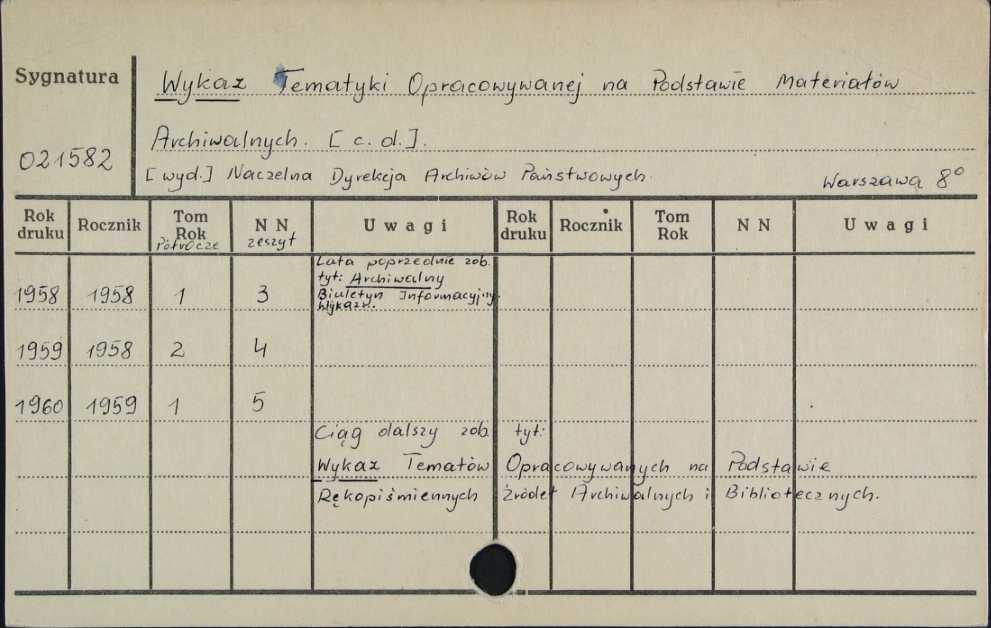 Sygnatura
021582
Wykaz Tematyki Opracowywanej na Podstawie Materiałów
Archiwalnych. [c. d.].
[wyd.] Naczelna Dyrekcja Archiwów Państwowych.
Warszawa 8°
Rok druku Rocznik Tom Rok Półrocze N N zeszyt Uwagi Rok druku Rocznik Tom Rok N N Uwagi
Lata poprzednie zob.
tyt: Archiwalny
Biuletyn Informacyjny.
Wykaz.
1958 1958 1 3
1959 1958 2 4
1960 1959 1 5
Ciąg dalszy zob. tyt:
Wykaz Tematów Opracowywanych na Podstawie
Rękopiśmiennych Źródeł Archiwalnych i Bibliotecznych.